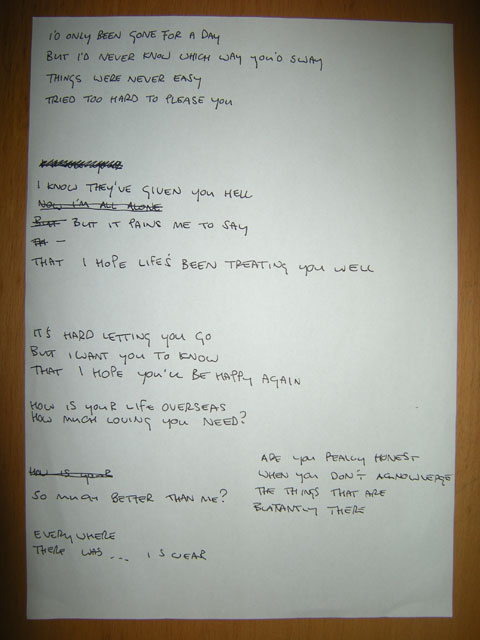 I'D ONLY BEEN GONE FOR A DAY
BUT I'D NEVER KNOW WHICH WAY YOU'D SWAY
THINGS WERE NEVER EASY
TRIED TOO HARD TO PLEASE YOU
I KNOW THEY'VE GIVEN YOU HELL
NOW I'M ALL ALONE
BUT BUT IT PAINS ME TO SAY
THAT I HOPE LIFE'S BEEN TREATING YOU WELL
IT'S HARD LETTING YOU GO
BUT I WANT YOU TO KNOW
THAT I HOPE YOU'LL BE HAPPY AGAIN
HOW IS YOUR LIFE OVERSEAS
HOW MUCH LOVING YOU NEED?
HOW IS YOUR
SO MUCH BETTER THAN ME?
EVERYWHERE
THERE WAS ... I SWEAR
ARE YOU REALLY HONEST
WHEN YOU DON'T ACKNOWLEDGE
THE THINGS THAT ARE
BLATANTLY THERE